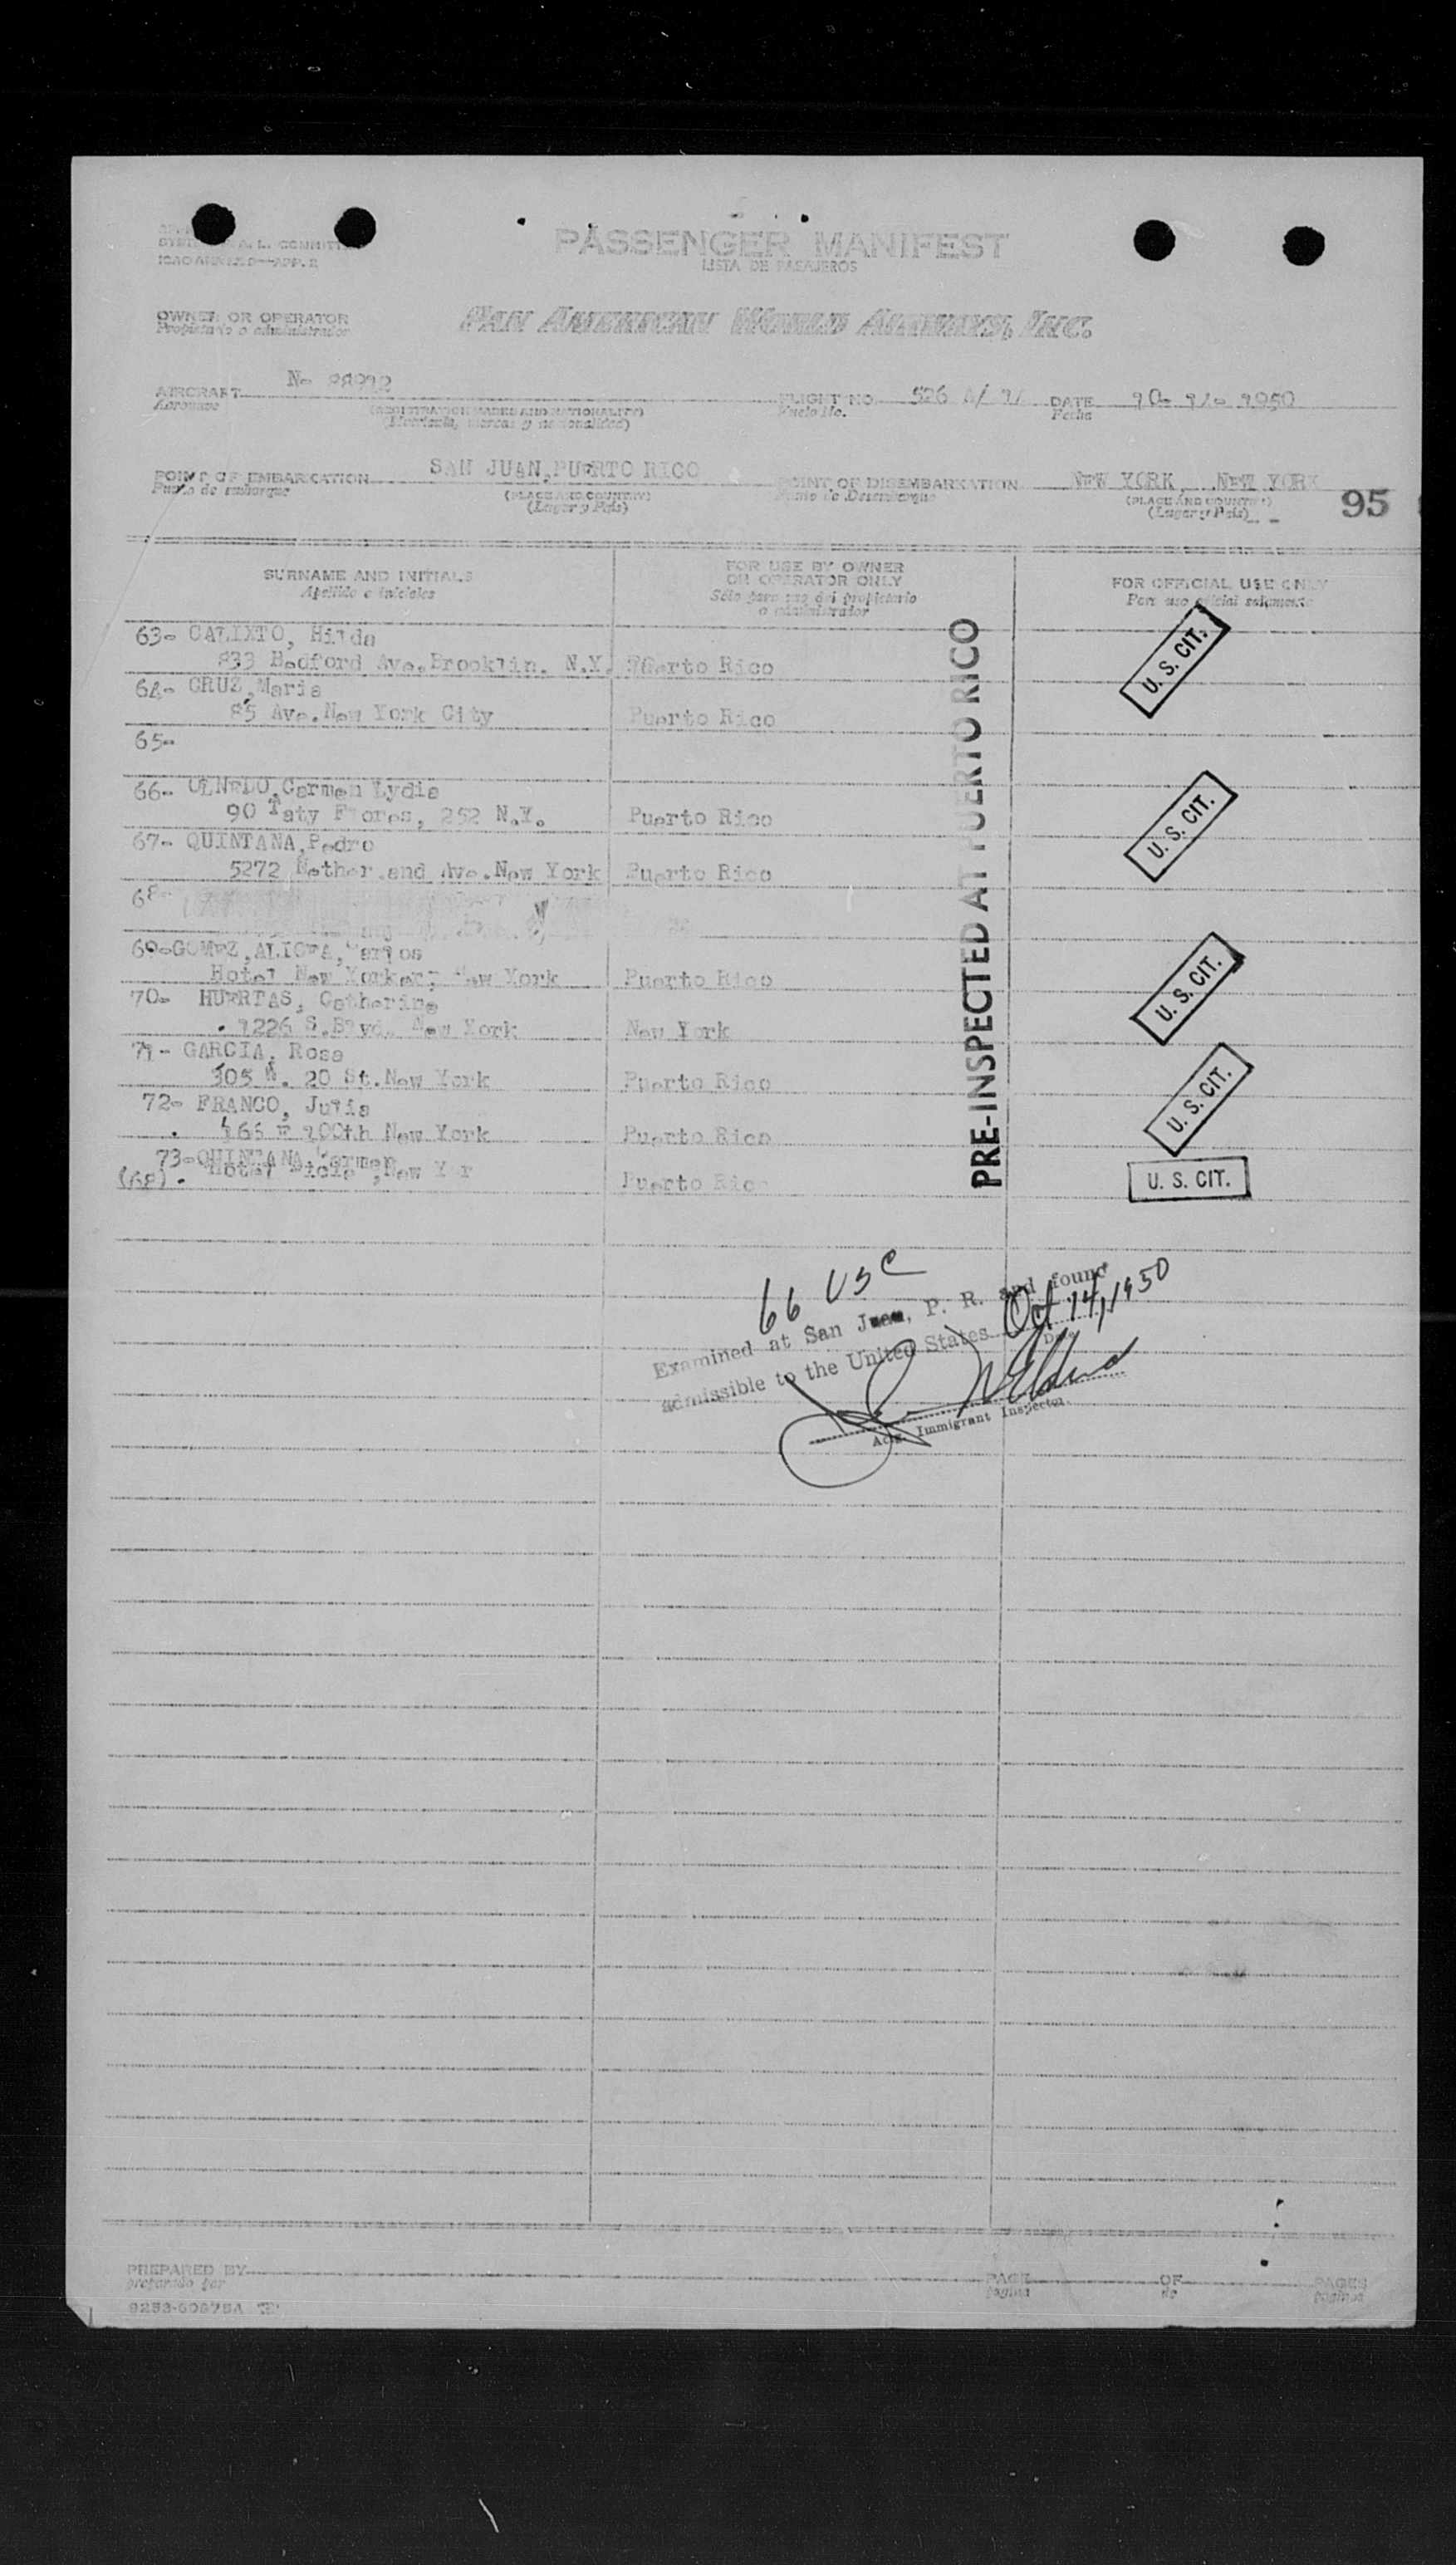 PASSENGER MANIFEST
LISTA DE PASAJEROS
OWNER OR OPERATOR
Propietario o administrador
PAN AMERICAN WORLD AIRWAYS, INC.
AIRCRAFT No
Aeronave
(REGISTRATION MARKS AND NATIONALITY)
(Matrícula, marcas y nacionalidad)
FLIGHT NO. 526
Vuelo No.
DATE
Fecha
POINT OF EMBARKATION SAN JUAN, PUERTO RICO
Punto de embarque
(PLACE AND COUNTRY)
(Lugar y País)
POINT OF DISEMBARKATION NEW YORK, NEW YORK
Punto de Desembarque
(PLACE AND COUNTRY)
(Lugar y País)
95
SURNAME AND INITIALS
Apellido e iniciales
FOR USE BY OWNER
OR OPERATOR ONLY
Sólo para uso del propietario
o administrador
FOR OFFICIAL USE ONLY
Para uso oficial solamente
63- CALIXTO, Hilda
833 Bedford Ave. Brooklin. N.Y. Puerto Rico
U. S. CIT.
64- CRUZ, Maria
85 Ave. New York City Puerto Rico
65-
66- Carmen Lydia
90 252 N.Y. Puerto Rico
U. S. CIT.
67- QUINTANA, Pedro
5272 Ave. New York Puerto Rico
68-
69- GOMEZ,
Hotel New Yorker, New York Puerto Rico
U. S. CIT.
70- HUERTAS, Catherine
1226 S. Blvd. New York New York
71- GARCIA, Rosa
305 W. 20 St. New York Puerto Rico
U. S. CIT.
72- FRANCO, Julia
166 E 100th New York Puerto Rico
73- QUINTANA, Carmen
(68). Hotel New Puerto Rico
U. S. CIT.
PRE-INSPECTED AT PUERTO RICO
66 USC
Examined at San Juan, P. R. and found
admissible to the United States Oct 14, 1950
Date
Actg. Immigrant Inspector.
PREPARED BY
preparado por
PAGE OF PAGES
página de páginas